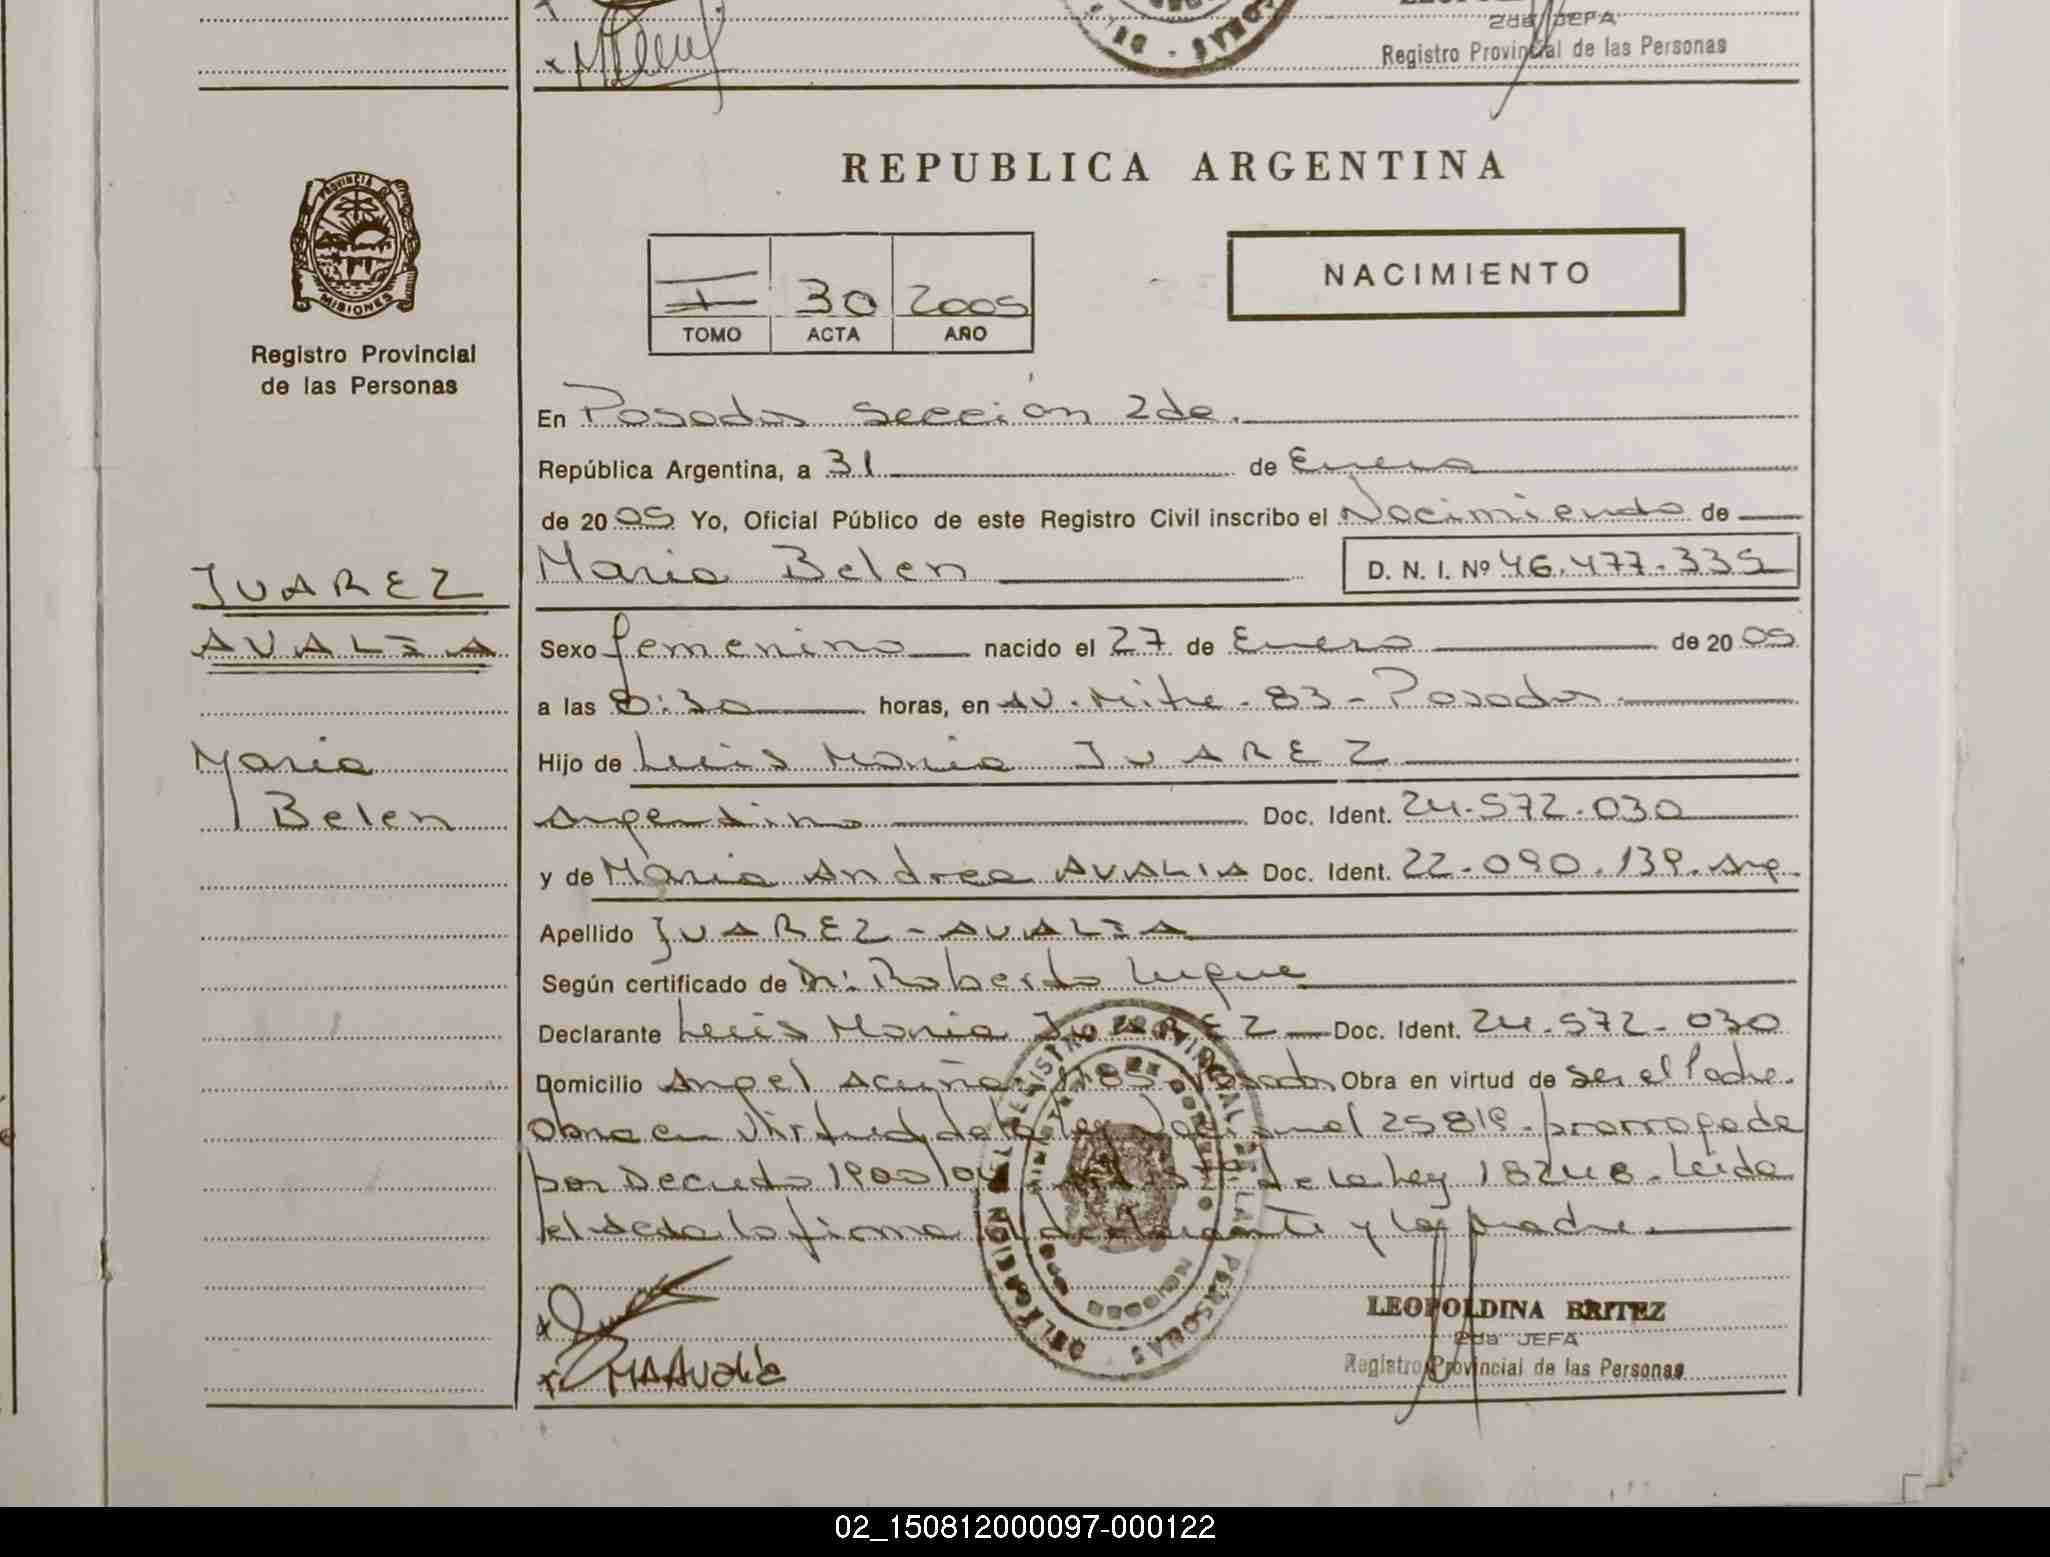 2da JEFA
Registro Provincial de las Personas
PROVINCIA D
MISIONES
Registro Provincial
de las Personas
REPUBLICA ARGENTINA
I 30 2005
TOMO ACTA AÑO
NACIMIENTO
En Posadas sección 2da.
República Argentina, a 31 de Enero
de 2005 Yo, Oficial Público de este Registro Civil inscribo el Nacimiento de
Maria Belen D. N. I. Nº 46.477.335
JUAREZ
AVALIA
Maria
Belen
Sexo femenino nacido el 27 de Enero de 2005
a las 8:30 horas, en AV. Mitre - 83 - Posadas
Hijo de Luis Maria JUAREZ
Argentino Doc. Ident. 24.572.030
y de Maria Andrea AVALIA Doc. Ident. 22.090.139. Arg.
Apellido JUAREZ - AVALIA
Según certificado de Dr: Roberto Luque
Declarante Luis Maria JUAREZ Doc. Ident. 24.572.030
Domicilio Angel Acuña Posadas Obra en virtud de ser el Padre.
Obra en Virtud de la ley Nacional 25819. prorrogada
por Decreto 1900/04 de la Ley 18248. Leida
el acta la firma el declarante y la madre.
LEOPOLDINA BRITEZ
2da JEFA
Registro Provincial de las Personas
MAAvalia
02_150812000097-000122